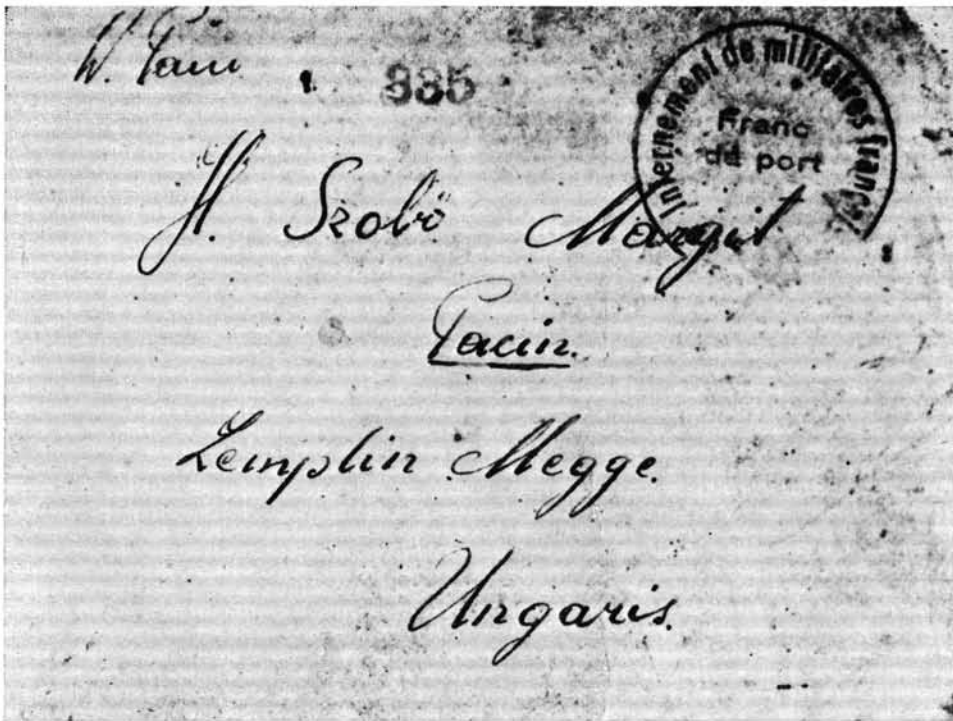 335
Internement de militaires franç
Franc
de port
Szobó Margit
Pacin.
Zemplin Megge.
Ungaris.